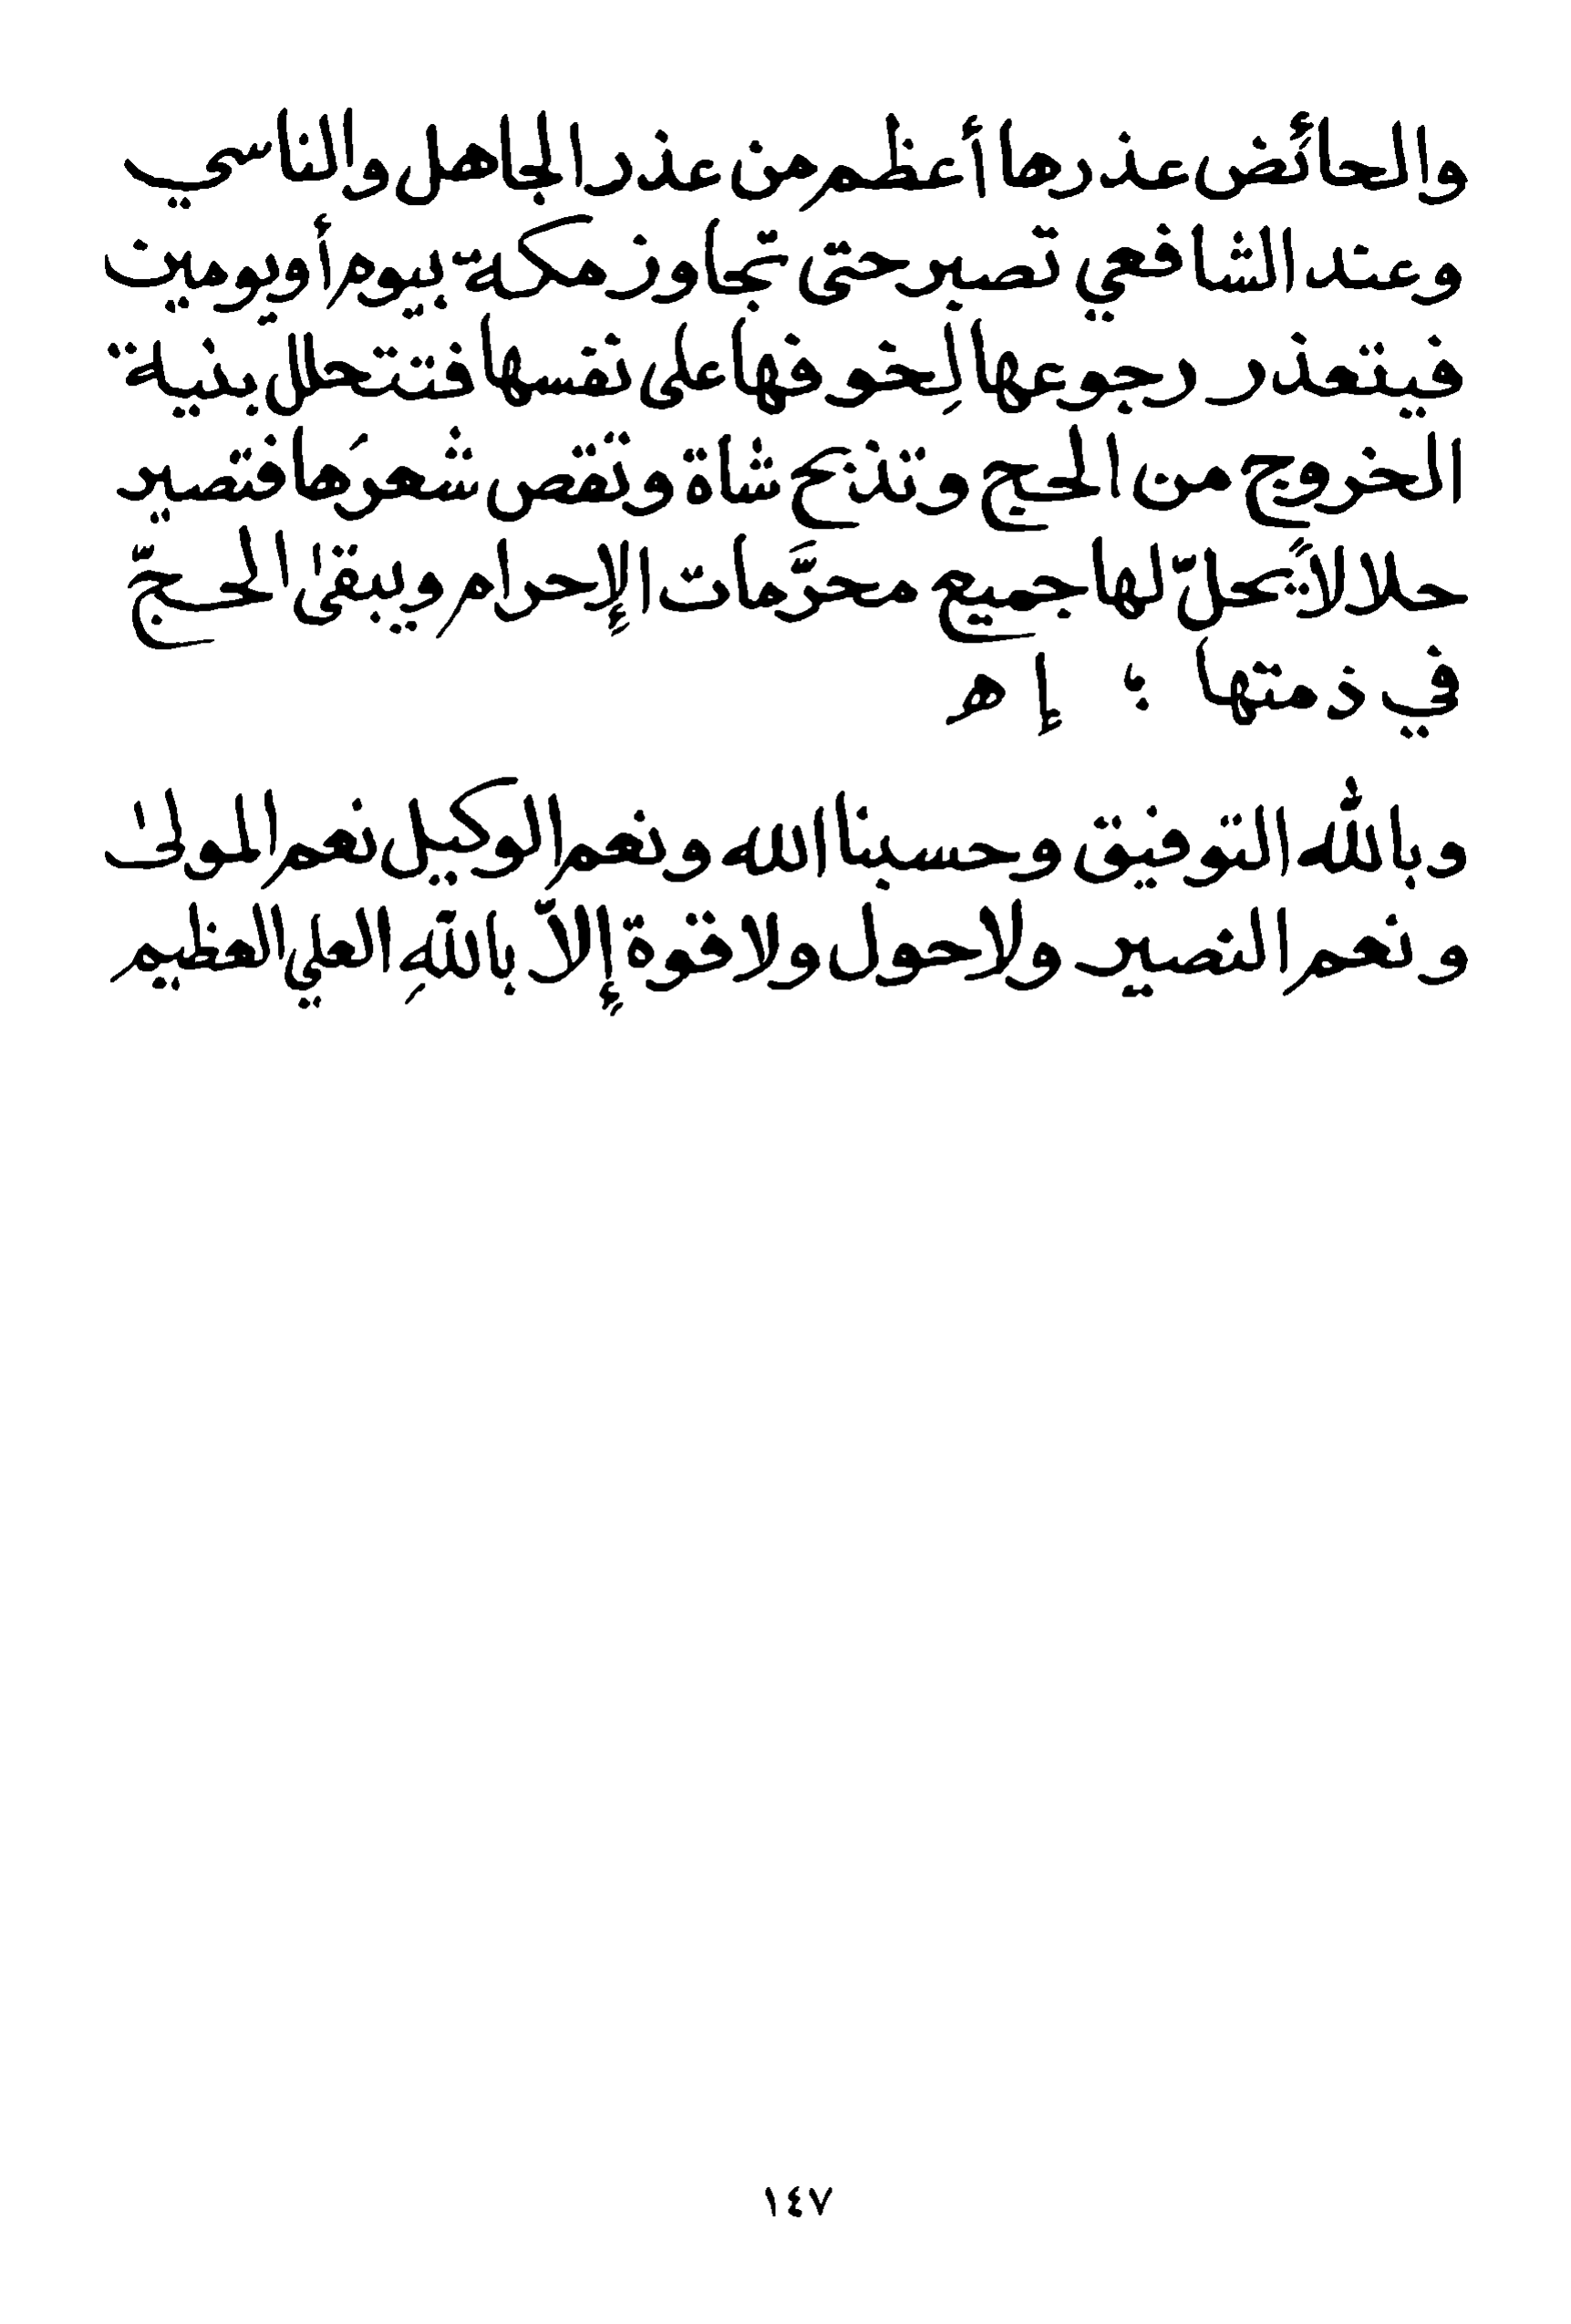 والحائض عذرها أعظم من عذر الجاهل والناسي
وعند الشافعي تصبر حتى تجاوز مكة بيوم أو يومين
فيتعذر رجوعها لِخوفها على نفسها فتتحلل بنية
الخروج من الحج وتذبح شاة وتقص شعرَها فتصير
حلالاً يحلّ لها جميع محرَّمات الإحرام ويبقىٰ الحجّ
في ذمتها ؛ إ ﻫ
وبالله التوفيق وحسبنا الله ونعم الوكيل نعم المولىٰ
ونعم النصير ولا حول ولا قوة إلاّ باللهِ العلي العظيم
١٤٧